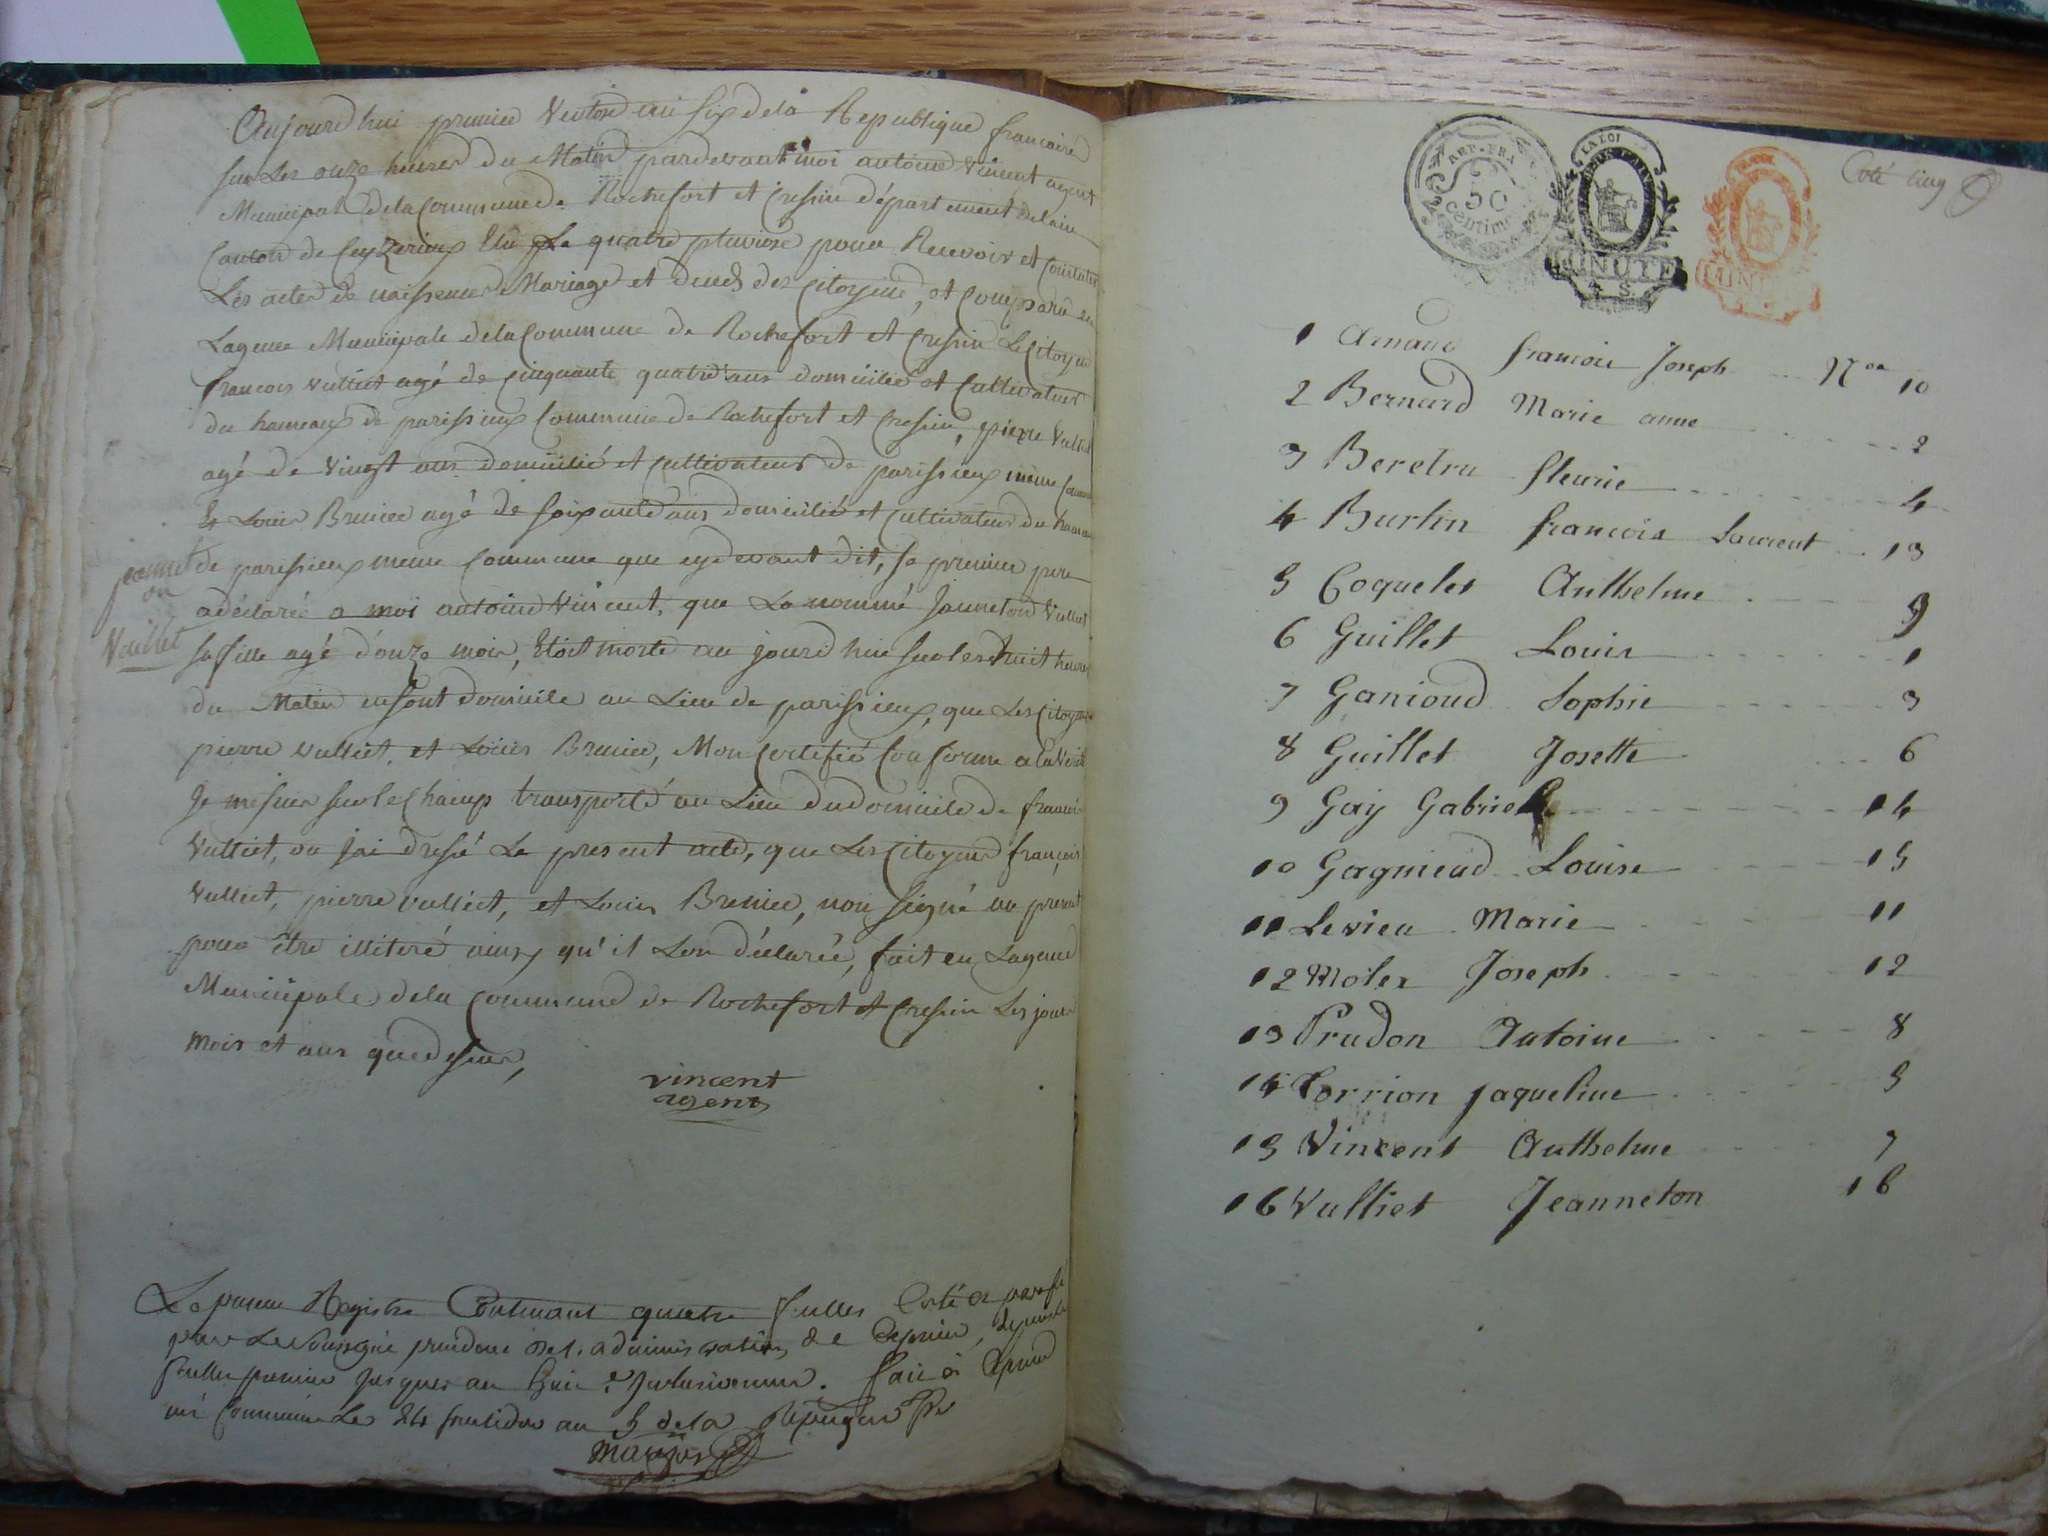 Aujourdhui premier Ventose an six de la Republique francaise
sur Les onze heures du Matin pardevant moi antoine Vincent agent
Municipal de la Commune de Rochefort et Cressin département delain
Canton de Ceyzerieux Elu Le quatre pluviose pour Recevoir et Constater
Les actes de naissences Mariage et deces des Citoyens, et Comparu en
Lagence Municipale de la Commune de Rochefort et Cressin Le Citoyen
francois vulliet agé de Cinquante quatre ans domicilié et Cultivateur
du hameaux de parissieux Commune de Rochefort et Cressin, pierre Vulliet
agé de Vingt ans domicilié et Cultivateur de parissieux meme Commune
Et Louis Brunier agé de soixante ans domicilié et Cultivateur du hameau
de parissieux meme Commune que cydevant dit, Le premier pere
adéclarée a moi antoine Vincent, que La nommé Janneton Vulliet
sa fille agé d'onze mois, Etoit morte au jourd hui sur les huit heures
du Matin en sont domicile au Lieu de parissieux, que Les Citoyens
pierre vulliet, et Louis Brunier, Mon Certifié Conforme a La Verité
Je me suis sur le Champs transporté au Lieu du domicile de francois
Vulliet, ou jai dressé Le present acte, que Les Citoyens françois
Vulliet, pierre vulliet, et Louis Brunier, non signé au present
pour être illiteré ainsy qu'il Lon déclarée, fait en Lagence
Municipale de la Commune de Rochefort et Cressin Les jour
mois et ans que dessus,
vincent
agent
jannet
on
Vulliet
Le present Registre Contenant quatre feulles Coté et paraffé
par Le soussigné president de l'administration de, depuis la
feulle premier jusques au huit inclusivement. fait à
Commune Le 24 fructidor an 5 de la Repuq
Coté cinq
REP. FRA
50
Centimes
LA LOI
MINUTE
1 Arnaud francois Joseph Nos 10
2 Bernard Marie anne 2
3 Beretra fleurie 4
4 Burlin francois Laurent 13
5 Coquelet Anthelme 9
6 Guillet Louis 1
7 Ganioud Sophie 3
8 Guillet Josette 6
9 Gay Gabriel 14
10 Gagnieud Louise 15
11 Levieu Marie 11
12 Molex Joseph 12
13 Prudon Antoine 8
14 Torrion Jaqueline 5
15 Vincent Anthelme 7
16 Vulliet Jeanneton 16